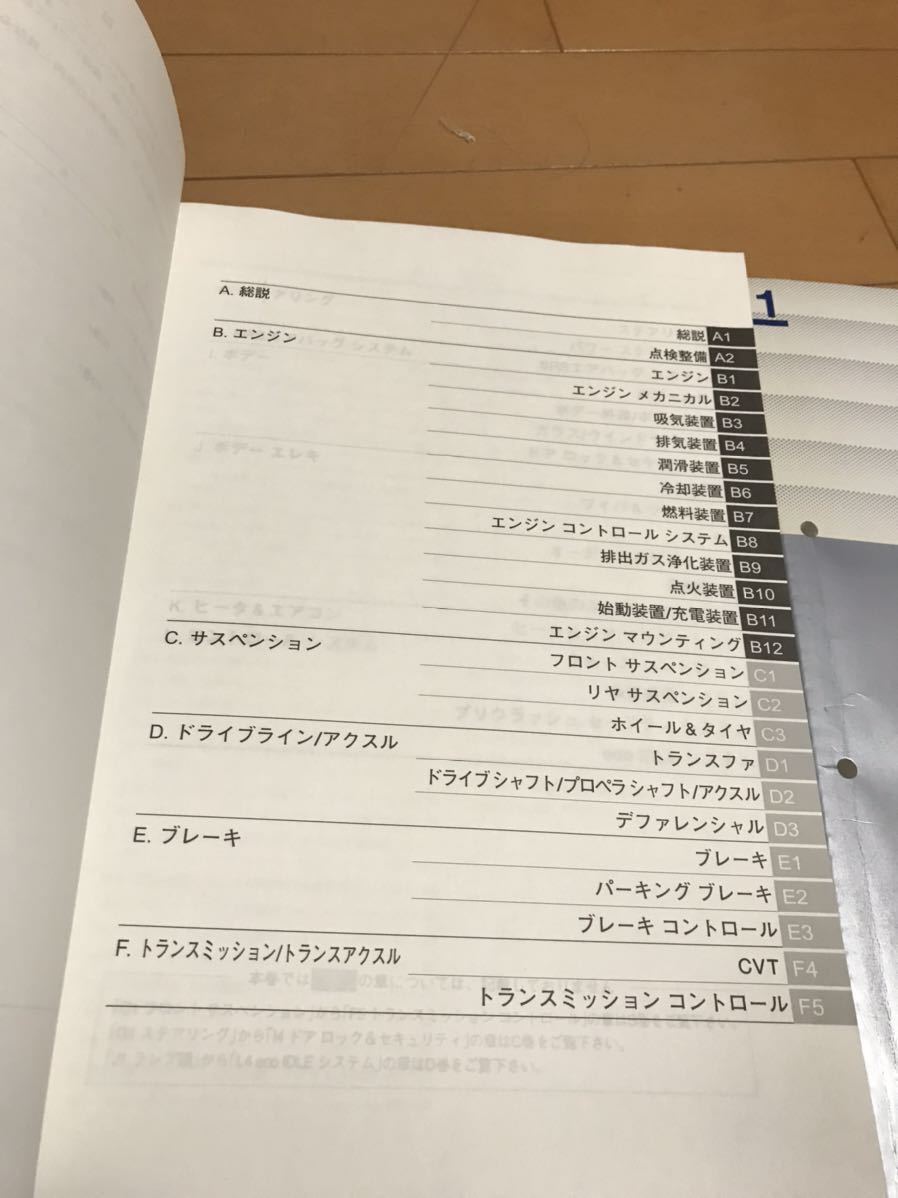 1
A. 総説
総説 A1
点検整備 A2
B. エンジン
エンジン B1
エンジン メカニカル B2
吸気装置 B3
排気装置 B4
潤滑装置 B5
冷却装置 B6
燃料装置 B7
エンジン コントロール システム B8
排出ガス浄化装置 B9
点火装置 B10
始動装置/充電装置 B11
エンジン マウンティング B12
C. サスペンション
フロント サスペンション C1
リヤ サスペンション C2
ホイール&タイヤ C3
D. ドライブライン/アクスル
トランスファ D1
ドライブシャフト/プロペラシャフト/アクスル D2
デファレンシャル D3
E. ブレーキ
ブレーキ E1
パーキング ブレーキ E2
ブレーキ コントロール E3
F. トランスミッション/トランスアクスル
CVT F4
トランスミッション コントロール F5